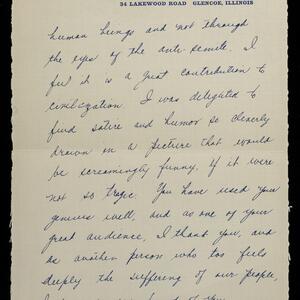 34 LAKEWOOD ROAD GLENCOE, ILLINOIS
human beings and not through
the eyes of the anti-semite. I
feel it is a great contribution to
civilization. I was delighted to
find satire and humor so cleverly
drawn on a picture that would
be screamingly funny, if it were
not so tragic. You have used your
genius well, and as one of your
great audience, I thank you, and
as another person who too feels
deeply the suffering of our people,